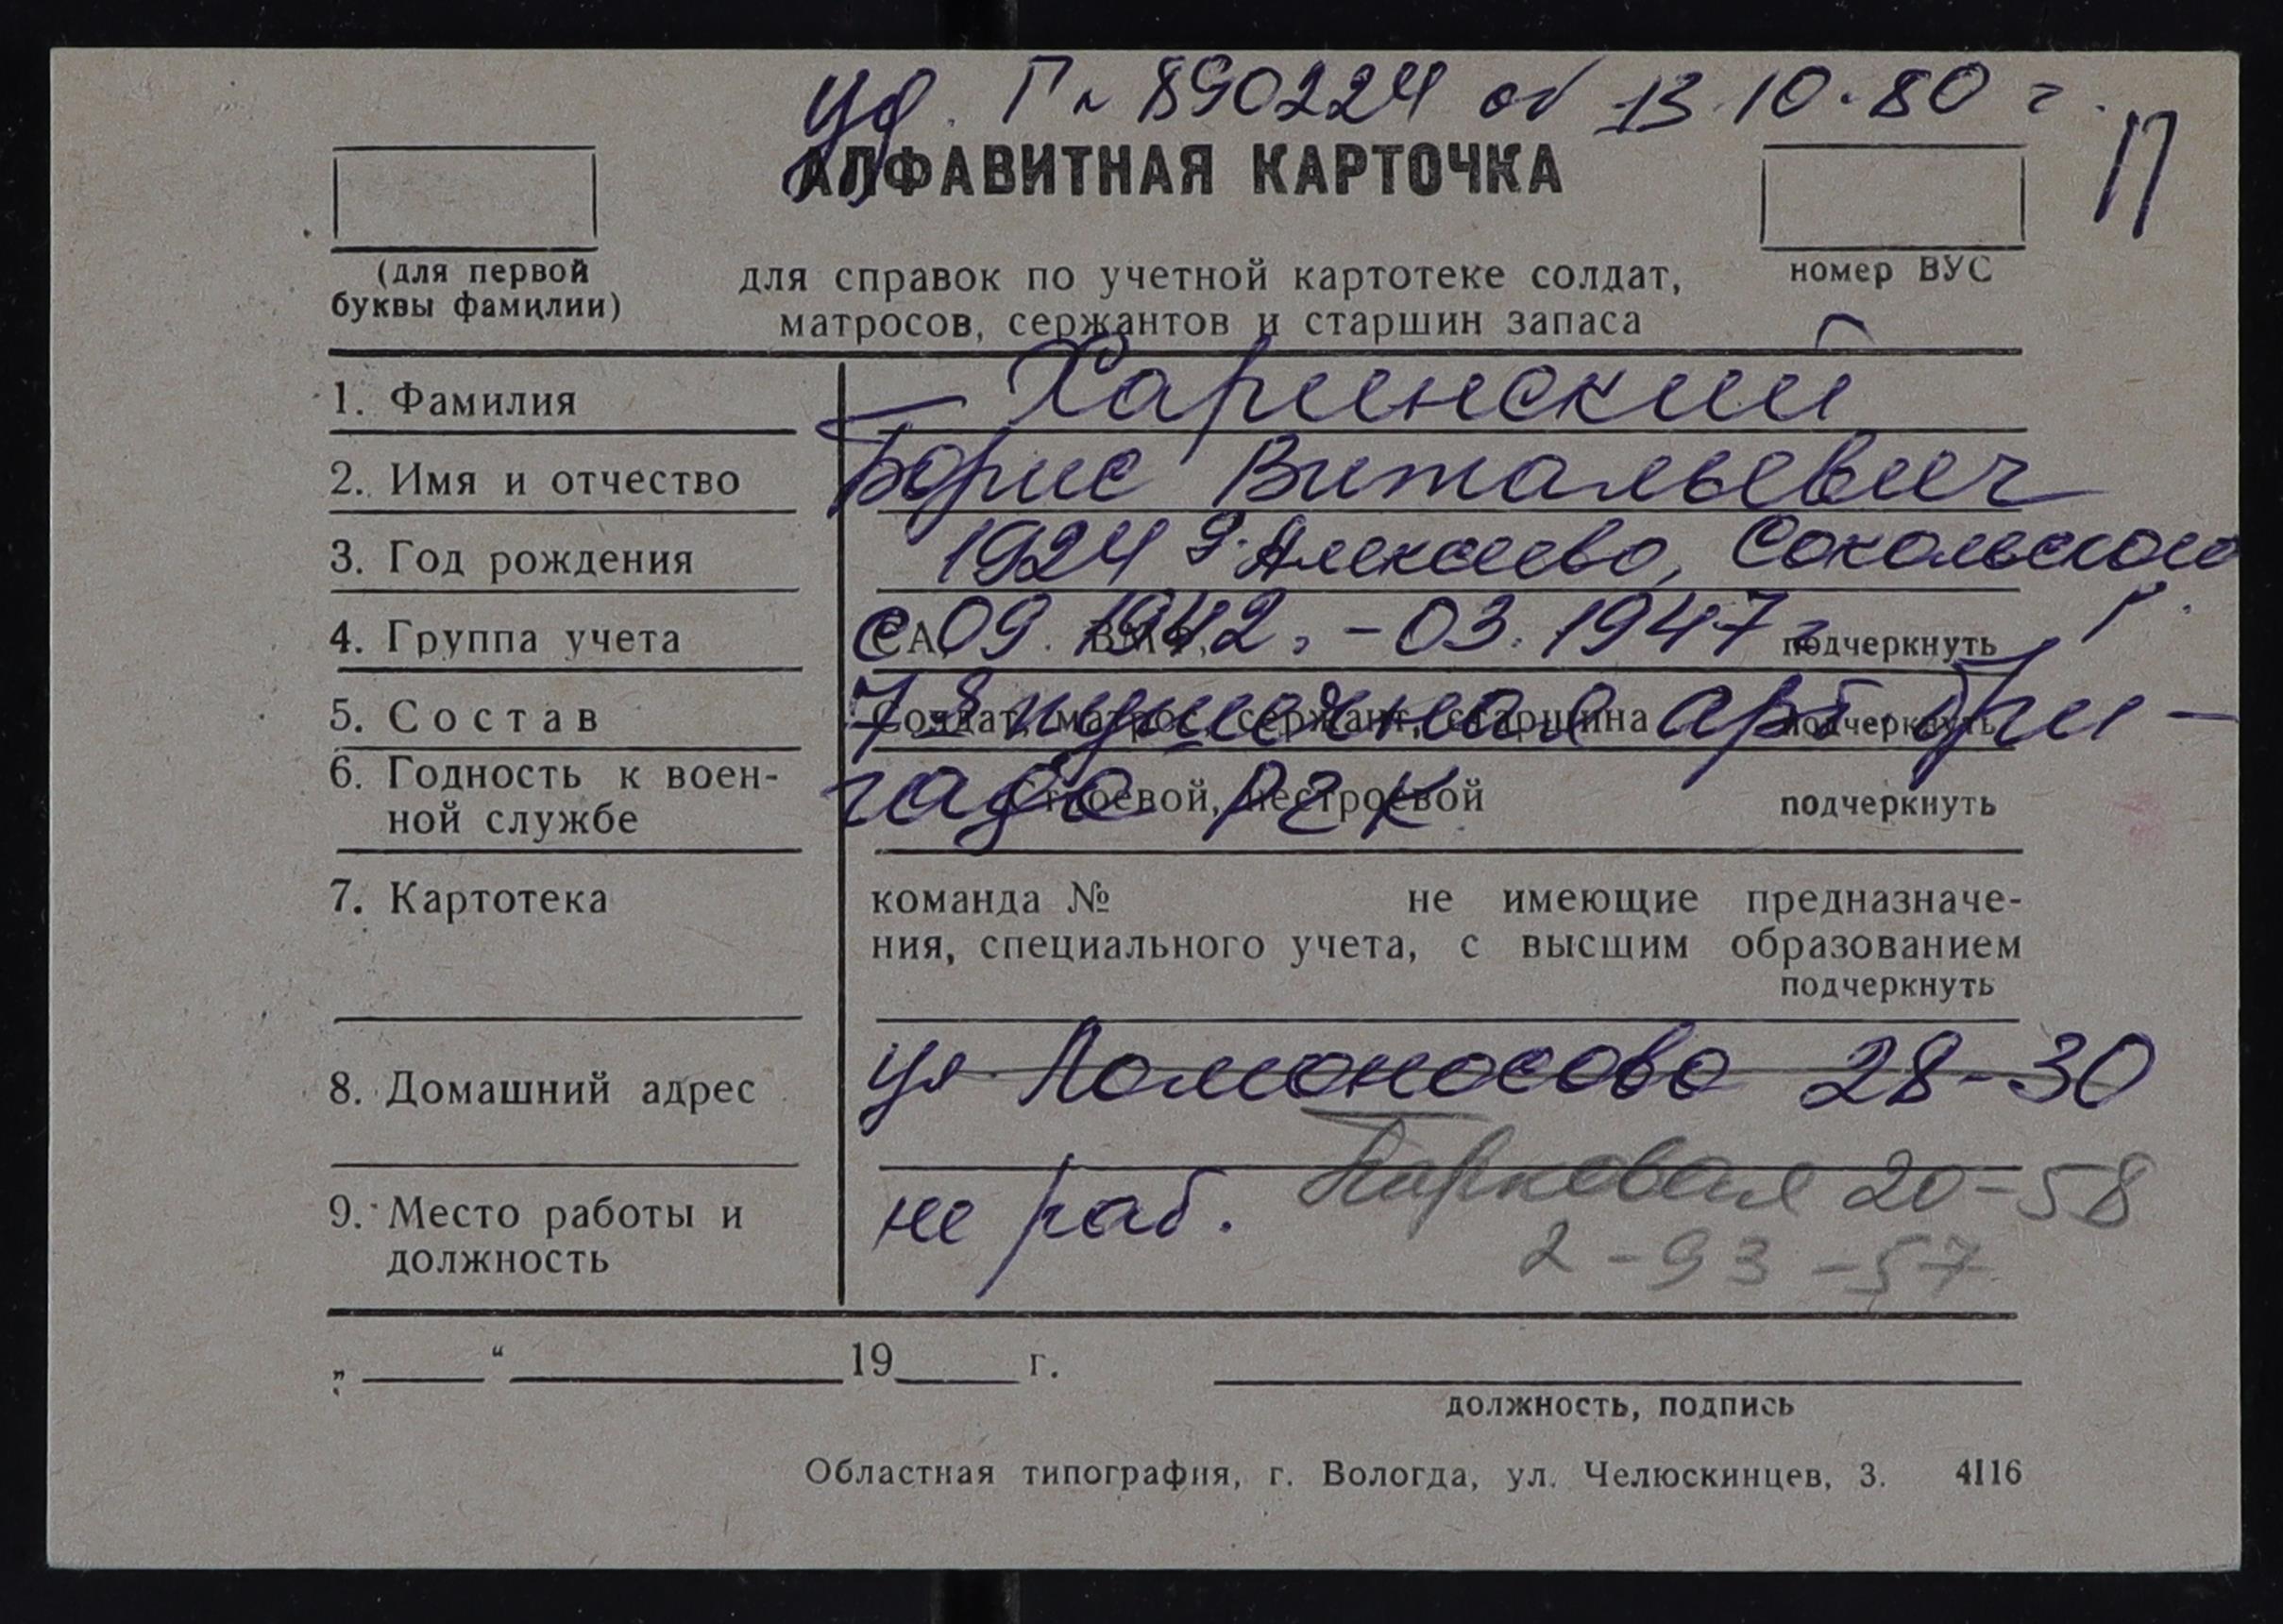 уд. Г № 890224 от 13.10.80 г.
П
АЛФАВИТНАЯ КАРТОЧКА
(для первой
буквы фамилии)
для справок по учетной картотеке солдат,
матросов, сержантов и старшин запаса
номер ВУС
1. Фамилия Харинский
2. Имя и отчество Борис Витальевич
3. Год рождения 1924 д. Алексеево, Сокольского
р.
4. Группа учета СА, ВМФ, подчеркнуть
с 09.1942. - 03.1947 г
5. Состав Солдат, матрос, сержант, старшина подчеркнуть
7 пушечная арт бри-
6. Годность к воен-
ной службе Строевой, нестроевой подчеркнуть
гада РГК
7. Картотека команда № не имеющие предназначе-
ния, специального учета, с высшим образованием
подчеркнуть
8. Домашний адрес ул. Ломоносова 28-30
Парковая 20-58
2-93-57
9. Место работы и
должность не раб.
„ “ 19 г.
должность, подпись
Областная типография, г. Вологда, ул. Челюскинцев, 3. 4116